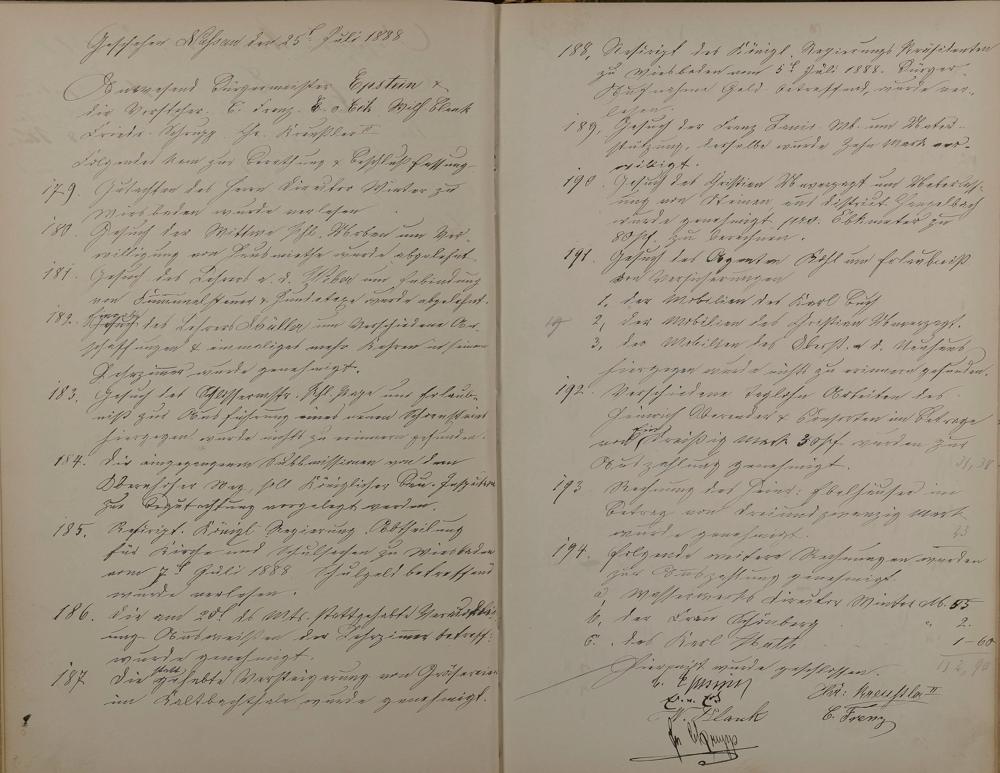 Geschehen Nassau den 25t Juli 1888
Anwesend Bürgermeister Epstein &
die Vorsteher. C. Frenz. E. v. Eck. Wilh Plank
Friedr. Schrupp Chr. Kreußler II
Folgendes kam zur Berathung & Beschlußfassung
179. Gutachten des Herrn Direktors Winter zu
Wiesbaden wurde verlesen
180. Gesuch der Wittwe um Ver-
willigung von Hausmiethe wurde abgelehnt.
181. Gesuch des Lehrers a. d. um Entbindung
von Kummunalsteuer & Hundetaxe wurde abgelehnt.
182. Gesuch des Lehrers Müller um Verschiedene An-
schaffungen & einmaliges mehr Kehren in seinem
Lehrzimmer wurde genehmigt.
183. Gesuch des um Erlaub-
niß zur Ausführung eines neuen Schornsteins
hiergegen wurde nichts zu erinnern gefunden.
184. Die eingegangenen Submissionen von dem
Weg, soll Königlicher Bau-Inspektion
zur Begutachtung vorgelegt werden.
185. Rescript. Königl Regierung Abtheilung
für Kirche und Schulsachen zu Wiesbaden
vom 7t Juli 1888 Schulgeld betreffend
wurde verlesen.
186. Die am 20t ds Mts. stattgehabte
der Lehrzimmer betreff:
wurde genehmigt.
187 Die statt gehabte Versteigerung von Gräsereien
im Kaltbachthale wurde genehmigt.
188, Rescript des Königl. Regierungs Präsidenten
zu Wiesbaden vom 5t Juli 1888. Bürger-
Aufnahme Geld betreffend, wurde ver-
lesen.
189, Gesuch der Franz Wb. um Unter-
stützung, derselbe wurde Zehn Mark ver-
willigt.
190 Gesuch des Christian Unverzagt um Ueberlass-
ung von Steinen aus District
wurde genehmigt pro Cbkmeter zu
80 Pf. zu berechnen.
191. Gesuch des Agenten um Erlaubniß
von Versicherungen
1, der Mobilien des Karl
2, der Mobilien des Christian Unverzagt.
3, der Mobilien des a. d.
hiergegen wurde nichts zu erinnern gefunden.
192. Verschiedene Arbeiten des
Heinrich & Consorten im Betrage
von Ein Dreißig Mark 38 Pf. wurden zur
Auszahlung genehmigt. 31,38
193 Rechnung des Heinr: im
Betrag von Dreiundzwanzig Mark
wurde genehmigt. 23
194. Folgende weitere Rechnungen wurden
zur Auszahlung genehmigt.
a, Wasserwerks Direktor Winter M. 55
b, der Frau Schönberg " 2.
c. des Karl 1-60
Hiermit wurde geschlossen. 112,98
C. Epstein
E. v. Eck Chr: Kreußler II
W. Plank C. Frenz
Fr Schrupp